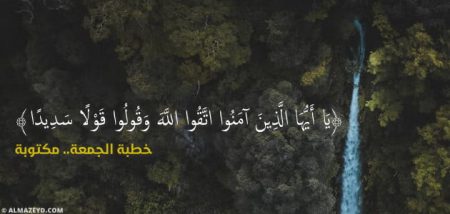 ﴿يَا أَيُّهَا الَّذِينَ آمَنُوا اتَّقُوا اللَّهَ وَقُولُوا قَوْلًا سَدِيدًا﴾
خطبة الجمعة.. مكتوبة
© ALMAZEYD.COM